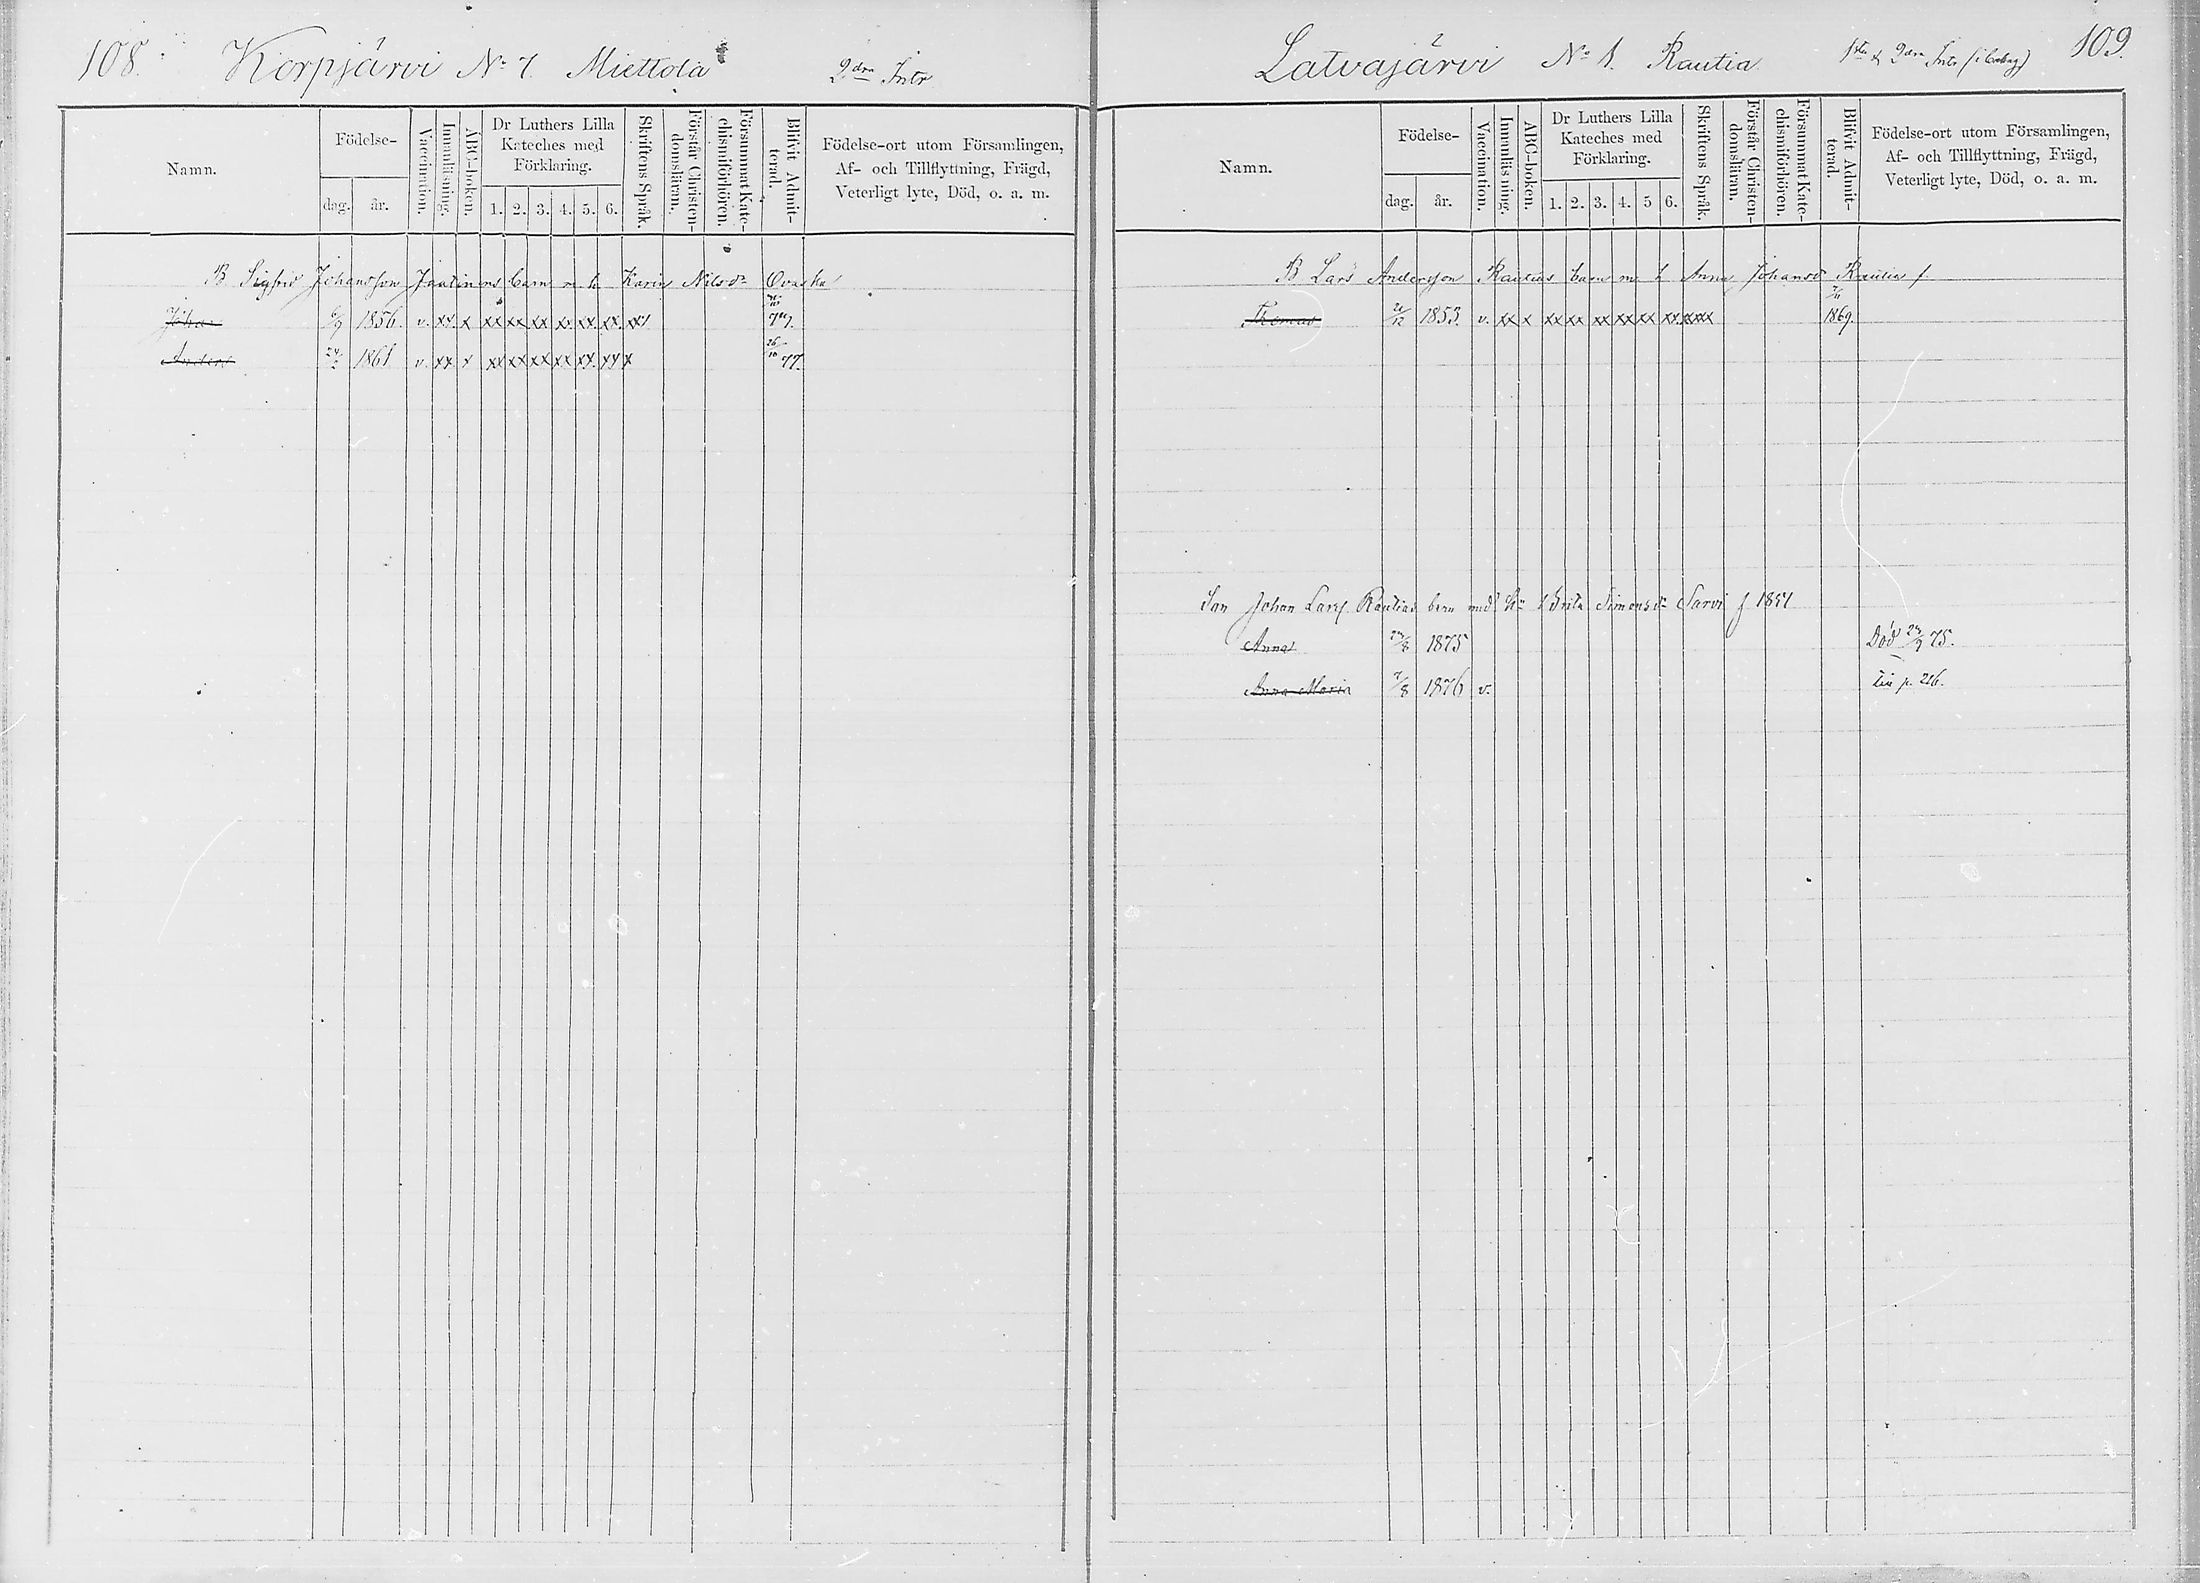 108.
Korpjärvi No 7. Miettola
2dra Intr
Namn.
Födelse-
dag.
år.
Vaccination.
Innanläsning.
ABC-boken.
Dr Luthers Lilla
Kateches med
Förklaring.
1. 2. 3. 4. 5. 6.
Skriftens Språk.
Förstår Christen-
domsläran.
Försummat Kate-
chismiförhören.
Blifvit Admit-
terad.
Födelse-ort utom Församlingen,
Af- och Tillflyttning, Frägd,
Veterligt lyte, Död, o. a. m.
B Sigfrid Johansson Jaatinens barn m h Karin Nilsdr Ovaska
Johan 6/9 1856. v. xx x xx xx xx xx xx xx
Anders 24/2 1861 v. xx x xx xx xx xx xx xx x 26/10 77.
Latvajärvi No 1. Rautia
1sta & 2dra Intr
109.
Namn.
Födelse-
dag.
år.
Vaccination.
Innanläsning.
ABC-boken.
Dr Luthers Lilla
Kateches med
Förklaring.
1. 2. 3. 4. 5 6.
Skriftens Språk.
Förstår Christen-
domsläran.
Försummat Kate-
chismiförhören.
Blifvit Admit-
terad.
Födelse-ort utom Församlingen,
Af- och Tillflyttning, Frägd,
Veterligt lyte, Död, o. a. m.
B Lars Andersson Rautias barn m h Anna Johansdr Rautia f
Thomas 21/12 1853. v. xx x xx xx xx xx xx xx xxx 7/11 1869.
Son Johan Larss. Rautias barn med Brita Simonsdr Sarvi f 1851
Anna 1875 Död 75.
Anna Maria 7/8 1876 v. p. 216.